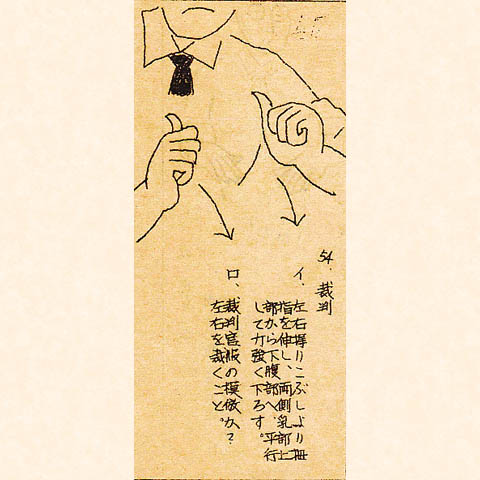 54. 裁判
イ、左右握りこぶしより拇
指を伸し、両側乳部上
部から下腹部へ、平行
して力強く下ろす。
ロ、裁判官服の模倣か？
左右を裁くこと。